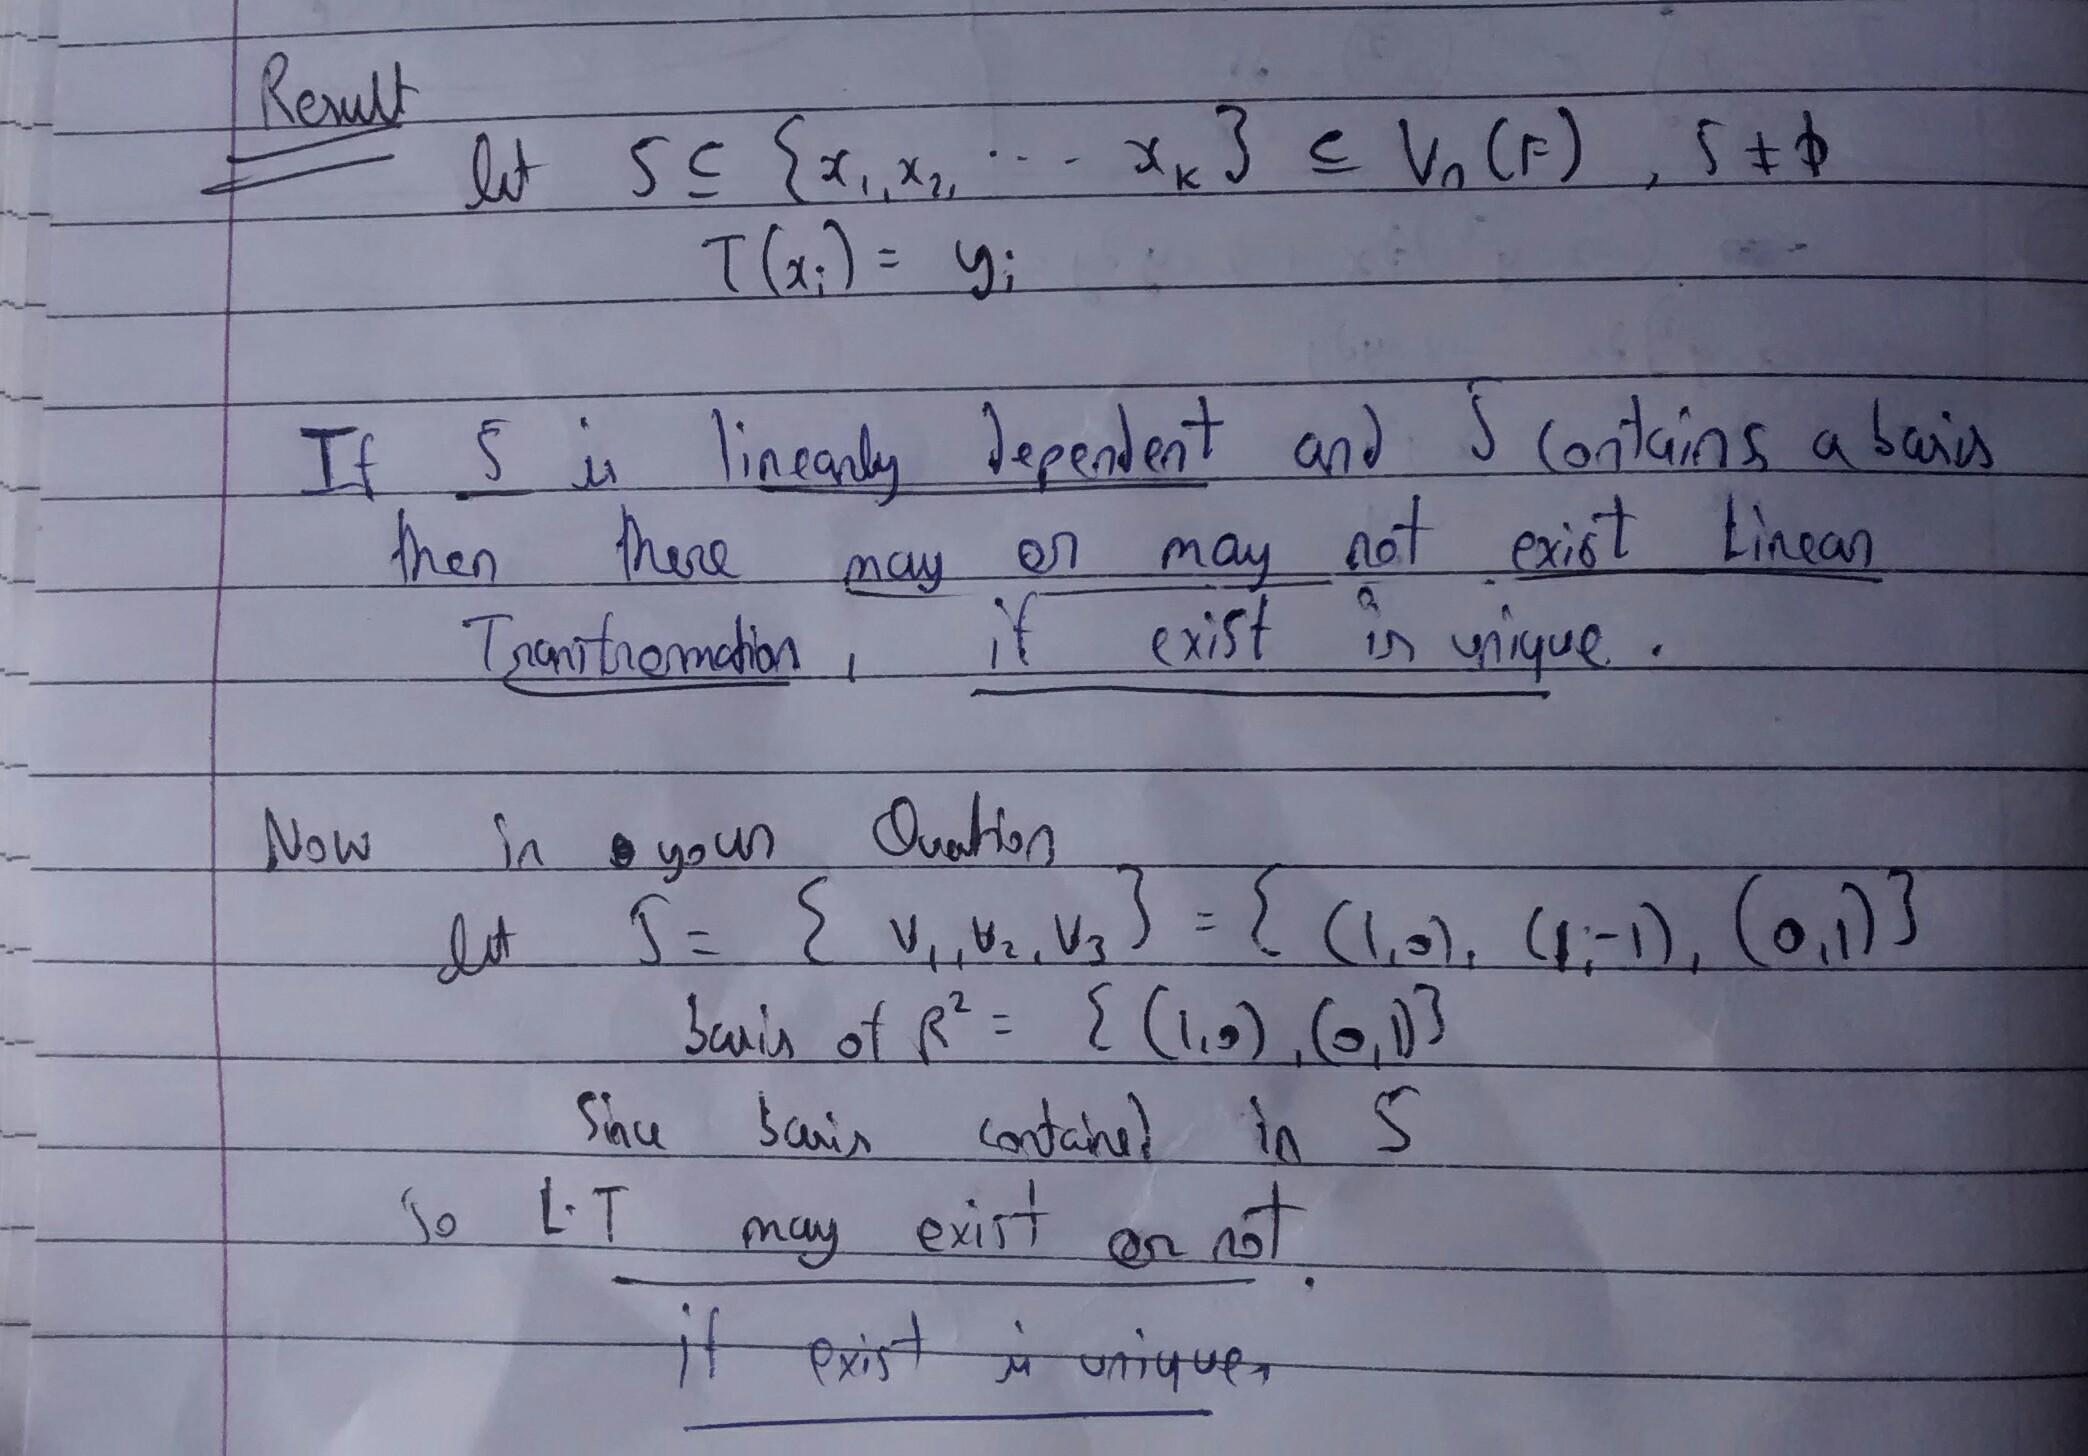 Result
let S ⊆ {x₁, x₂, ... xₖ} ⊆ Vₙ(F), S ≠ ϕ
T(xᵢ) = yᵢ
If S is linearly dependent and S contains a basis
then there may or may not exist Linear
Transfromation, if exist is unique.
Now in your Question
let S = {v₁, v₂, v₃} = {(1,0), (1,-1), (0,1)}
basis of R² = {(1,0), (0,1)}
Since basis contained in S
So L.T may exist or not.
if exist is unique.